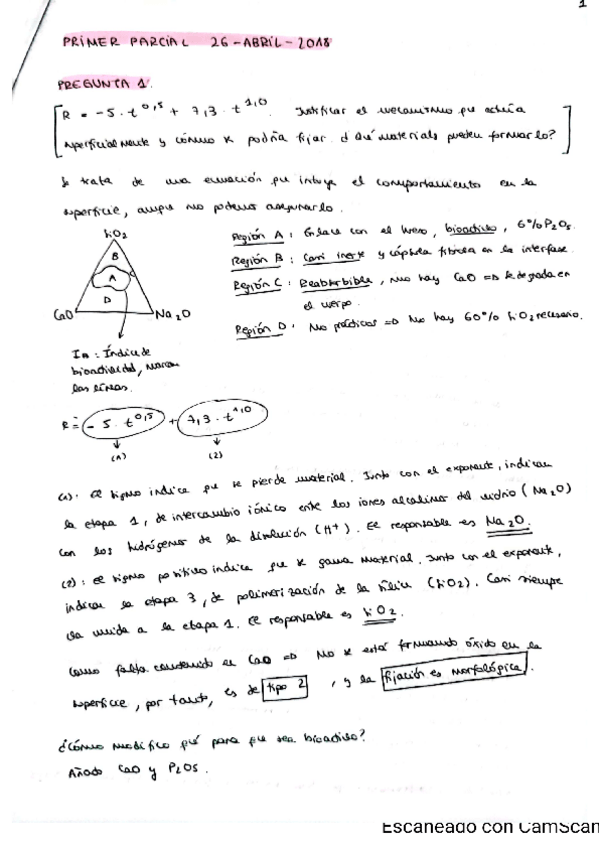 1
PRIMER PARCIAL 26-ABRIL-2018
PREGUNTA 1.
R = -5 · t^0,5 + 7,3 · t^1,0. Justificar el mecanismo que actúa
superficialmente y cómo se podría fijar. ¿Qué materiales pueden formarlo?
Se trata de una ecuación que intuye el comportamiento en la
superficie, aunque no podemos asegurarlo.
SiO2
B
A
C
D
CaO
Na2O
Región A: Enlace con el hueso, bioactivo, 6% P2O5.
Región B: Casi inerte y cápsula fibrosa en la interfase.
Región C: Reabsorbible, no hay CaO => se degrada en
el cuerpo.
Región D: No prácticos => No hay 60% SiO2 necesario.
IB: Índice de
bioactividad, marcan
las líneas.
R = -5 · t^0,5 + 7,3 · t^1,0
(1) (2)
(1): El signo indica que se pierde material. Junto con el exponente, indican
la etapa 1, de intercambio iónico entre los iones alcalinos del vidrio (Na2O)
con los hidrógenos de la disolución (H+). El responsable es Na2O.
(2): El signo positivo indica que se gana material. Junto con el exponente,
indican la etapa 3, de polimerización de la sílice (SiO2). Casi siempre
va unida a la etapa 1. El responsable es SiO2.
Como falta contenido en CaO => No se está formando óxido en la
superficie, por tanto, es de tipo 2, y la fijación es morfológica.
¿Cómo modifico qué para que sea bioactivo?
Añado CaO y P2O5.
Escaneado con CamScan